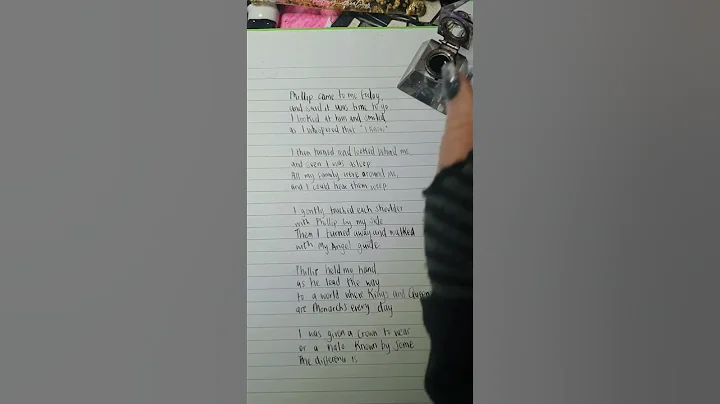 Phillip came to me today,
and said it was time to go
I looked at him and smiled
as I whispered that "I know"
I then turned and looked behind me
and seen I was asleep
All my family were around me,
and I could hear them weep
I gently touched each shoulder
with Phillip by my side
Then I turned away and walked
with My Angel guide
Phillip held my hand
as he lead the way
to a world where Kings and Queens
are Monarchs every day
I was given a crown to wear
or a Halo Known by some
The difference is